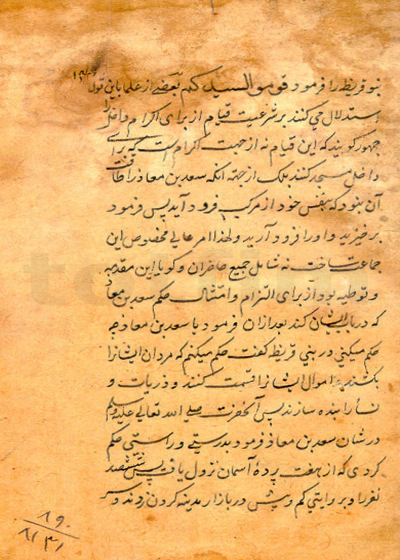 بنو قریظه را فرمود قوموا لسیدکم بعضی از علما باین قول
استدلال می کنند بر شرعیت قیام از برای اکرام داخل را
جمهور گویند که این قیام نه از جهت اکرام است که برای
داخل مسجد کنند بلکه از جهة آنکه سعد بن معاذ را طاقت
آن نبود که بنفس خود از مرکب فرود آید پس فرمود
برخیزید و او را فرود آرید و لهذا امر عالی مخصوص این
جماعت ساخت نه شامل جمیع حاضران و گویا این مقدمه
و توطیه بود از برای التزام و امتثال حکم سعد بن معاذ
که در باب ایشان کند بعد ازان فرمود یا سعد بن معاذ چه
حکم میکنی در بنی قریظه گفت حکم میکنم که مردان ایشانرا
بکشند و اموال ایشانرا قسمت کنند و ذریات و
نسا را بنده سازند پس آنحضرت صلی الله تعالی علیه وسلم
در شان سعد بن معاذ فرمود بدرستی و راستی حکم
کردی که از هفت پرده آسمان نزول یافت پس ششصد
نفر را و بروایتی کم و بیش در بازار مدینه گردن زدند و